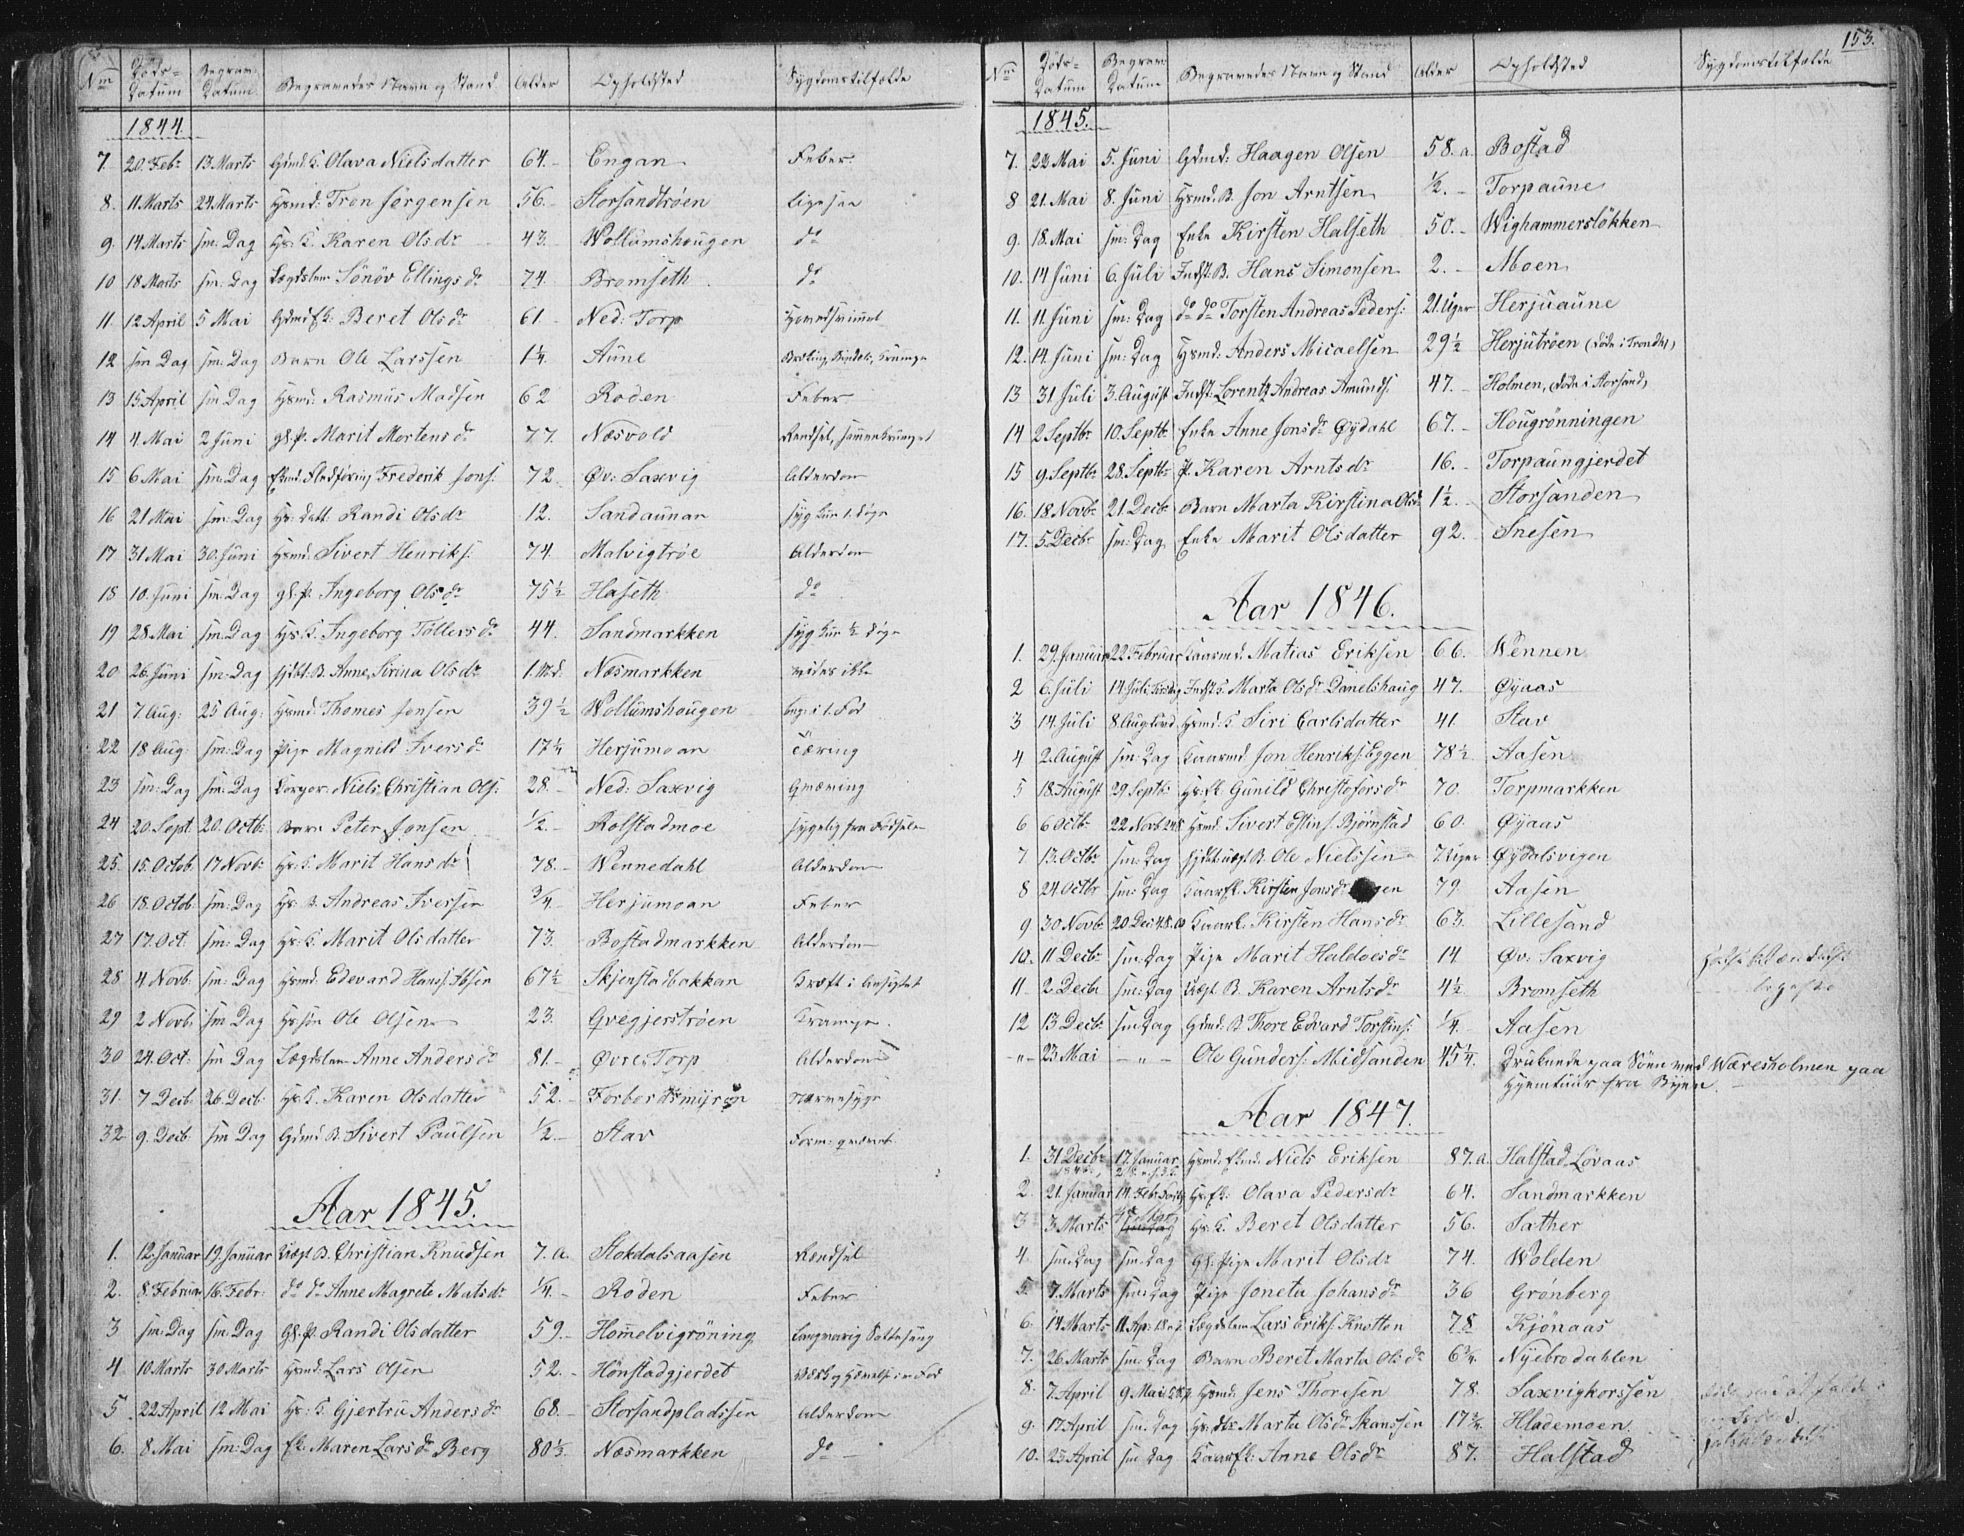 Nm Döds-Datum Begrav: Datum Begravedes Navn og Stand Alder Opholdsted Sygdomstilfælde
1844.
7. 20. Febr 13. Marts Gdmd. K. Olava Nielsdatter 64.- Engan Feber
8. 11. Marts 24. Marts Hsmd: Tron Jørgensen 56.- Storsandtrøen Ligesaa
9. 14. Marts sm: Dag Hs: K. Karen Olsdr 43.- Wollumshougen do
10 18. Marts sm: Dag Lægdslem Sönöv Ellingsdr 74. Bromseth do
11. 12 April 5 Mai Gdmd fk: Beret Olsdr 61.- Ned: Torp
12 sm Dag sm: Dag Barn Ole Larssen 1 1/4. Aune
13 15. April sm Dag Hsmd: Rasmus Madsen 62 Roden Feber
14 4. Mai 2 Juni gl. p. Marit Mortensdr 77. Næsvold
15 6 Mai sm: Dag Frederik Jons: 72. Øv: Saxvig Alderdom
16 21 Mai sm: Dag Hs: Datt: Randi Olsdr 12. Sandaunan syg kun 1. Døgn
17 31. Mai 30. Juni Hsmd. Sivert Henriks: 74. Malvigtrøe Alderdom
18 10. Juni sm: Dag gl. p. Ingeborg Olsdr 75 1/2 Haseth do
19 28 Mai sm: Dag Hs K. Ingeborg Töllersdr 44. Sandmarkken syg kun 1/2 Døgn
20 26. Juni sm: Dag B. Anne, Sirina Olsdr 1. Md. Næsmarkken vides ikke
21 7. Aug: 25 Aug: Hsmd: Thomes Jonsen 39 1/2 Wollumshougen
22 18 Aug: sm: Dag Pige Magnild Iversdr 17 1/4 Herjumoan Tæring
23 sm: Dag sm: Dag Niels Christian Ols: 28.- Ned: Saxvig
24 20. Sept 20. Octbr Barn Peter Jonsen 1/2.- Rolstadmoe sygelig fra Fødselen
25. 15. Octob. 17 Novbr Hs: K. Marit Hansdr 78.- Wennedahl Alderdom
26 18. Octob. sm: Dag Hs: B. Andreas Iversen 3/4.- Herjumoan Feber
27 17. Oct. sm: Dag Hs: K. Marit Olsdatter 73. Bostadmarkken Alderdom
28 4 Novb. sm: Dag Hsmd: Edevard Hans: 67 1/2 Skjenstadbakkan Kræft i Ansigtet
29 2 Novb. sm Dag Hs søn Ole Olsen 23. Gregjerstrøen Krampe.
30 24. Oct: sm Dag Lægdslem Anne Andersdr 81.- Øvre Torp Alderdom
31. 7 Decb. 26. Decb. Hs: K. Karen Olsdatter 52.- Nervesyge
32 9. Decb sm Dag Gdmd B. Sivert Paulsen 1/2.- Stav
Aar 1845.
1. 12. Januar 19. Januar B. Christian Knudsen 7. a. Stokdalsaasen
2. 8. Februar 16. Febr: do do Anne Magrete Matsdr 1/4.- Roden Feber
3 sm: Dag sm: Dag Gl. p. Randi Olsdatter 59.- Hommelvigröning Langvarig
4. 10. Marts 30. Marts Hsmd: Lars Olsen 52.- Hönstadgjerdet
5 22 April 12 Mai Hs: K. Gjertru Andersdr 68. Storsandpladssen Alderdom
6. 8. Mai sm: Dag fk. Maren Larsdr Berg 80 1/2. Næsmarkken do
153.
Nm Döds-Datum Begrav: Datum Begravedes Navn og Stand Alder Opholdsted Sygdomstilfælde
1845.
7. 22 Mai 5. Juni Gdmd: Haagen Olsen 58. a. Bostad
8 21. Mai 8. Juni Hsmd. B. Jon Arntsen 1/2.- Torpaune
9. 18. Mai sm: Dag Enke Kirsten Halseth 50.- Wighammerslökken
10. 14 Juni 6. Juli Indst. B. Hans Simonsen 2.- Moen
11. 11. Juni sm: Dag do do Torsten Andreas Peders: 21. Uger Herjuaune
12. 14. Juni sm: Dag Hsmd: Anders Micaelsen 29 1/2 Herjutröen (döde i Trondhj)
13 31. Juli 3. August Indst: Lorentz Andreas Amunds: 47.- Holmen, (döde i Storsand)
14 2 Septbr 10. Septbr Enke Anne Jonsdr Øydahl 67.- Hougrönningen
15 9. Septbr 28. Septbr P. Karen Arntsdr 16.- Torpaungjerdet
16. 18. Novbr 21. Decbr Barn Marta Kirstina Olsdr 1 1/2.- Storsanden
17. 5. Decbr sm: Dag Enke Marit Olsdatter 92. Snesen
Aar 1846.
1. 29. Januar 22 Februar Kaarmd: Matias Eriksen 66. Wennen
2 6. Juli 14. Juli Indst: Marta Olsdr Danelshaug 47. Øyaas
3 14. Juli 8. Aug Hsmd: K Siri Carlsdatter 41 Stav
4 2. August sm: Dag Kaarmd. Jon Henriks: Eggen 78 1/2 Aasen
5 18. August 29 Septbr Hs: fk. Gunild Christofersdr 70. Torpmarkken
6 6 Octbr 22 Novb Hsmd: Sivert Estins: Björnstad 60. Øyaas
7. 13. Octbr sm: Dag B. Ole Nielssen 7. Uger Øydalsvigen
8 24. Octbr sm: Dag Kaarfk. Kirsten Jonsdr 79. Aasen
9 30 Novb. 20 Dec Kaark. Kirsten Hansdr 63. Lillesand
10. 11. Decbr sm: Dag Pige Marit Haldoesdr 14 Øv: Saxvig
11 2. Decbr sm: Dag B. Karen Arntsdr 4 1/2 Bromseth
12 13 Decbr sm: Dag Gdmd. B. Thore Edvard Torstins: 1/4.- Aasen
-"- 23. Mai -"- Ole Gunders: Midsanden 45 1/4. Druknede paa Söen ved Wæresholmen paa
Hjemtuur fra Byen.
Aar 1847.
1. 31. Decbr 1846 17. Januar Niels Eriksen 87. a. Halstad Lövaas
2. 21. Januar 14. Febr Hs: fk: Olava Pedersdr 64. Sandmarkken
3 3 Marts Hs: K. Beret Olsdatter 56. Sather
4. sm: Dag sm: Dag Gl. Pige Marit Olsdr 74. Wolden
5. 7. Marts sm: Dag Pige Joneta Johansdr 36 Grønberg
6. 14 Marts 11 Ap: Lægdslem Lars Eriks: Knotten 78 Kjønaas
7. 26. Marts sm: Dag Barn Beret Marta Olsdr 6 3/4. Nyebrodahlen
8. 7. April 9. Mai Hsmd: Jens Thoresen 78. Saxvigkorssen
9. 17. April sm: Dag Hs: dtr Marta Olsdr Skanssen 17 3/4. Hlademoen
10. 23. April sm Dag Kaarfk: Anne Olsdr 87. Halstad